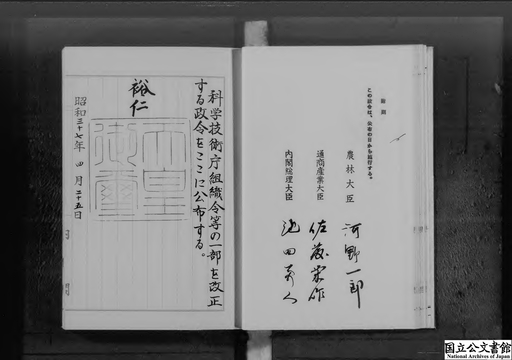 附則
この政令は、公布の日から施行する。
農林大臣 河野一郎
通商産業大臣 佐藤栄作
内閣総理大臣 池田勇人
科学技術庁組織令等の一部を改正
する政令をここに公布する。
裕仁
天皇
御璽
昭和三十七年四月二十五日
国立公文書館
National Archives of Japan